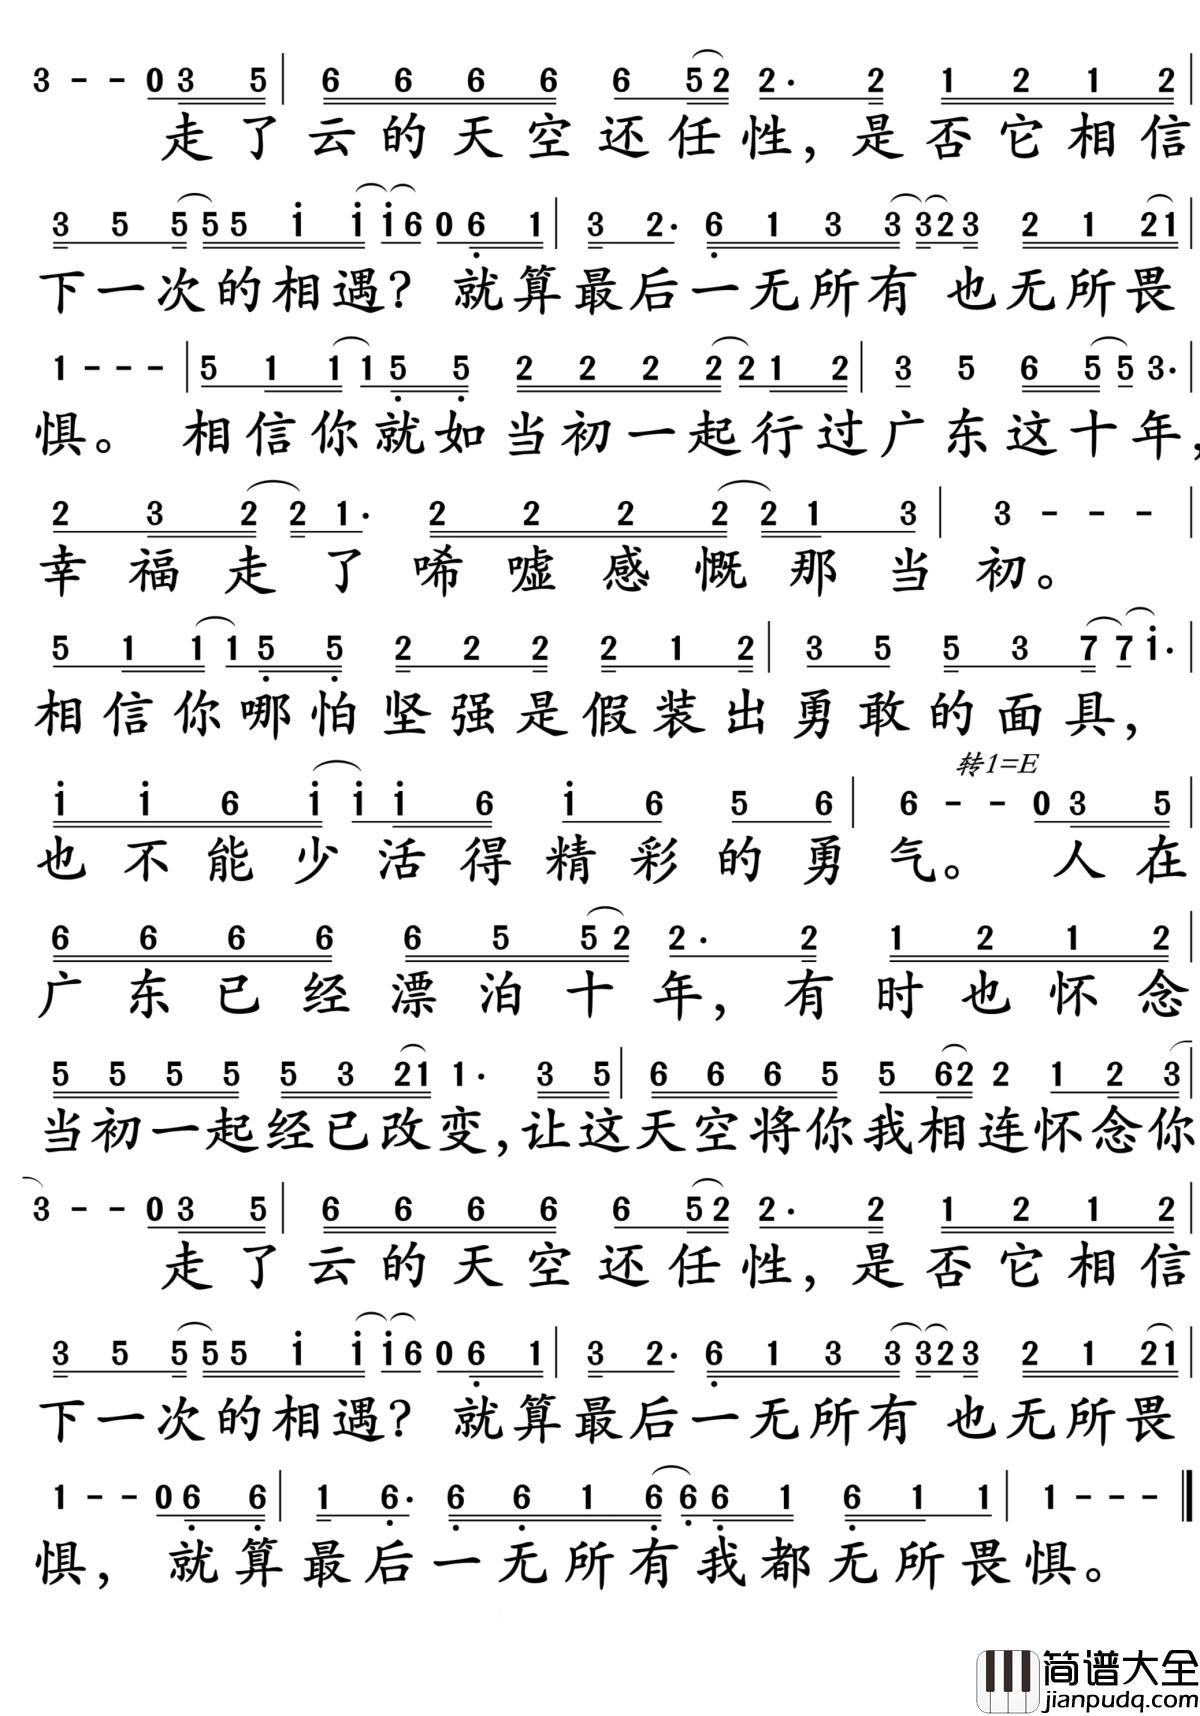 3 - - 0 3 5 | 6 6 6 6 6 5 2 2· 2 1 2 1 2 |
走了云的天空还任性，是否它相信
3 5 5 5 5 i i i 6 0 6 1 | 3 2· 6 1 3 3 3 2 3 2 1 2 1 |
下一次的相遇？就算最后一无所有 也无所畏
1 - - - | 5 1 1 1 5 5 2 2 2 2 2 1 2 | 3 5 6 5 5 3· |
惧。相信你就如当初一起行过广东这十年，
2 3 2 2 1· 2 2 2 2 2 1 3 | 3 - - - |
幸福走了唏嘘感慨那当初。
5 1 1 1 5 5 2 2 2 2 1 2 | 3 5 5 3 7 7 i· |
相信你哪怕坚强是假装出勇敢的面具，
转1=E
i i 6 i i i 6 i 6 5 6 | 6 - - 0 3 5 |
也不能少活得精彩的勇气。人在
6 6 6 6 6 5 5 2 2· 2 1 2 1 2 |
广东已经漂泊十年，有时也怀念
5 5 5 5 5 3 2 1 1· 3 5 | 6 6 6 5 5 6 2 2 1 2 3 |
当初一起经已改变，让这天空将你我相连怀念你
3 - - 0 3 5 | 6 6 6 6 6 5 2 2· 2 1 2 1 2 |
走了云的天空还任性，是否它相信
3 5 5 5 5 i i i 6 0 6 1 | 3 2· 6 1 3 3 3 2 3 2 1 2 1 |
下一次的相遇？就算最后一无所有 也无所畏
1 - - 0 6 6 | 1 6· 6 6 1 6 6 6 1 6 1 1 | 1 - - - ‖
惧，就算最后一无所有我都无所畏惧。
简谱大全
jianpudq.com